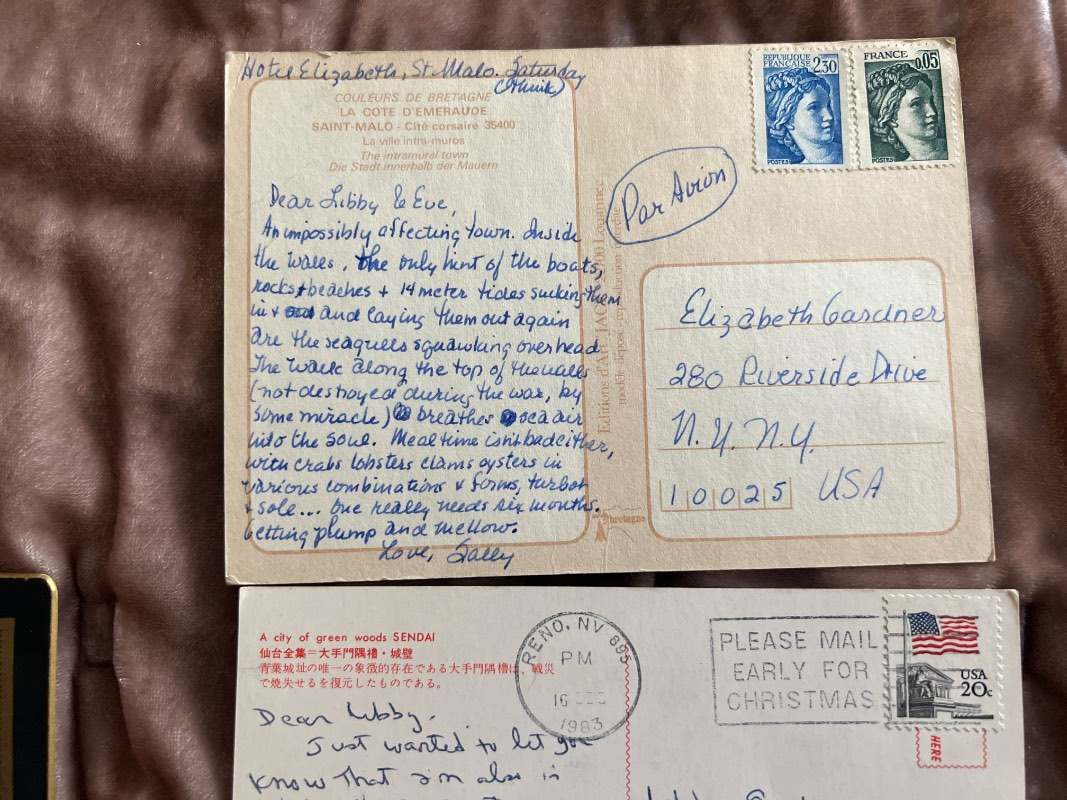 Hotel Elizabeth, St. Malo. Saturday
(I think)
COULEURS DE BRETAGNE
LA COTE D'EMERAUDE
SAINT-MALO - Cité corsaire 35400
La ville intra-muros
The intramural town
Die Stadt innerhalb der Mauern
Dear Libby & Eve,
An impossibly affecting town. Inside
the walls, the only hint of the boats,
rocks + beaches + 14 meter tides sucking them
in + and laying them out again
are the seagulls squawking overhead.
The walk along the top of the walls
(not destroyed during the war, by
some miracle) breathes sea air
into the soul. Mealtime isn't bad either,
with crabs lobsters clams oysters in
various combinations & forms, turbot
& sole... One really needs six months.
Getting plump and mellow.
Love, Sally
Editions d'ART JACK
bretagne
REPUBLIQUE
FRANÇAISE 2,30
POSTES
FRANCE
0,05
POSTES
Par Avion
Elizabeth Gardner
280 Riverside Drive
N.Y. N.Y.
10025 USA
A city of green woods SENDAI
仙台全集=大手門隅櫓・城壁
青葉城址の唯一の象徴的存在である大手門隅櫓は、戦災
で焼失せるを復元したものである。
RENO, NV 895
PM
16 DEC
1983
PLEASE MAIL
EARLY FOR
CHRISTMAS
USA
20c
HERE
Dear Libby-
Just wanted to let you
know that I'm also in